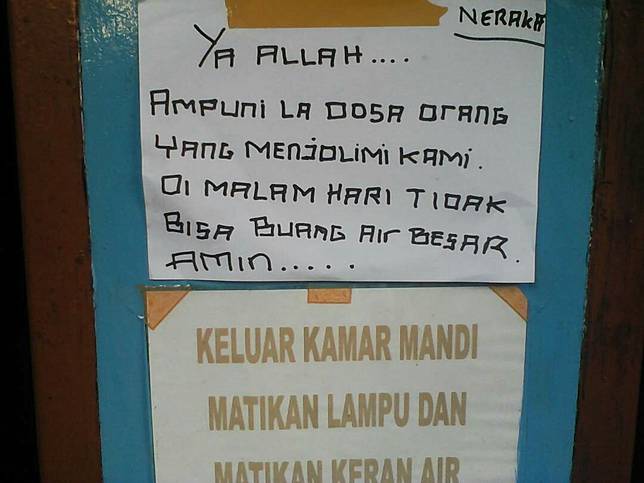 NERAKA
YA ALLAH....
AMPUNI LA DOSA ORANG
YANG MENJOLIMI KAMI.
DI MALAM HARI TIDAK
BISA BUANG AIR BESAR.
AMIN.....
KELUAR KAMAR MANDI
MATIKAN LAMPU DAN
MATIKAN KERAN AIR